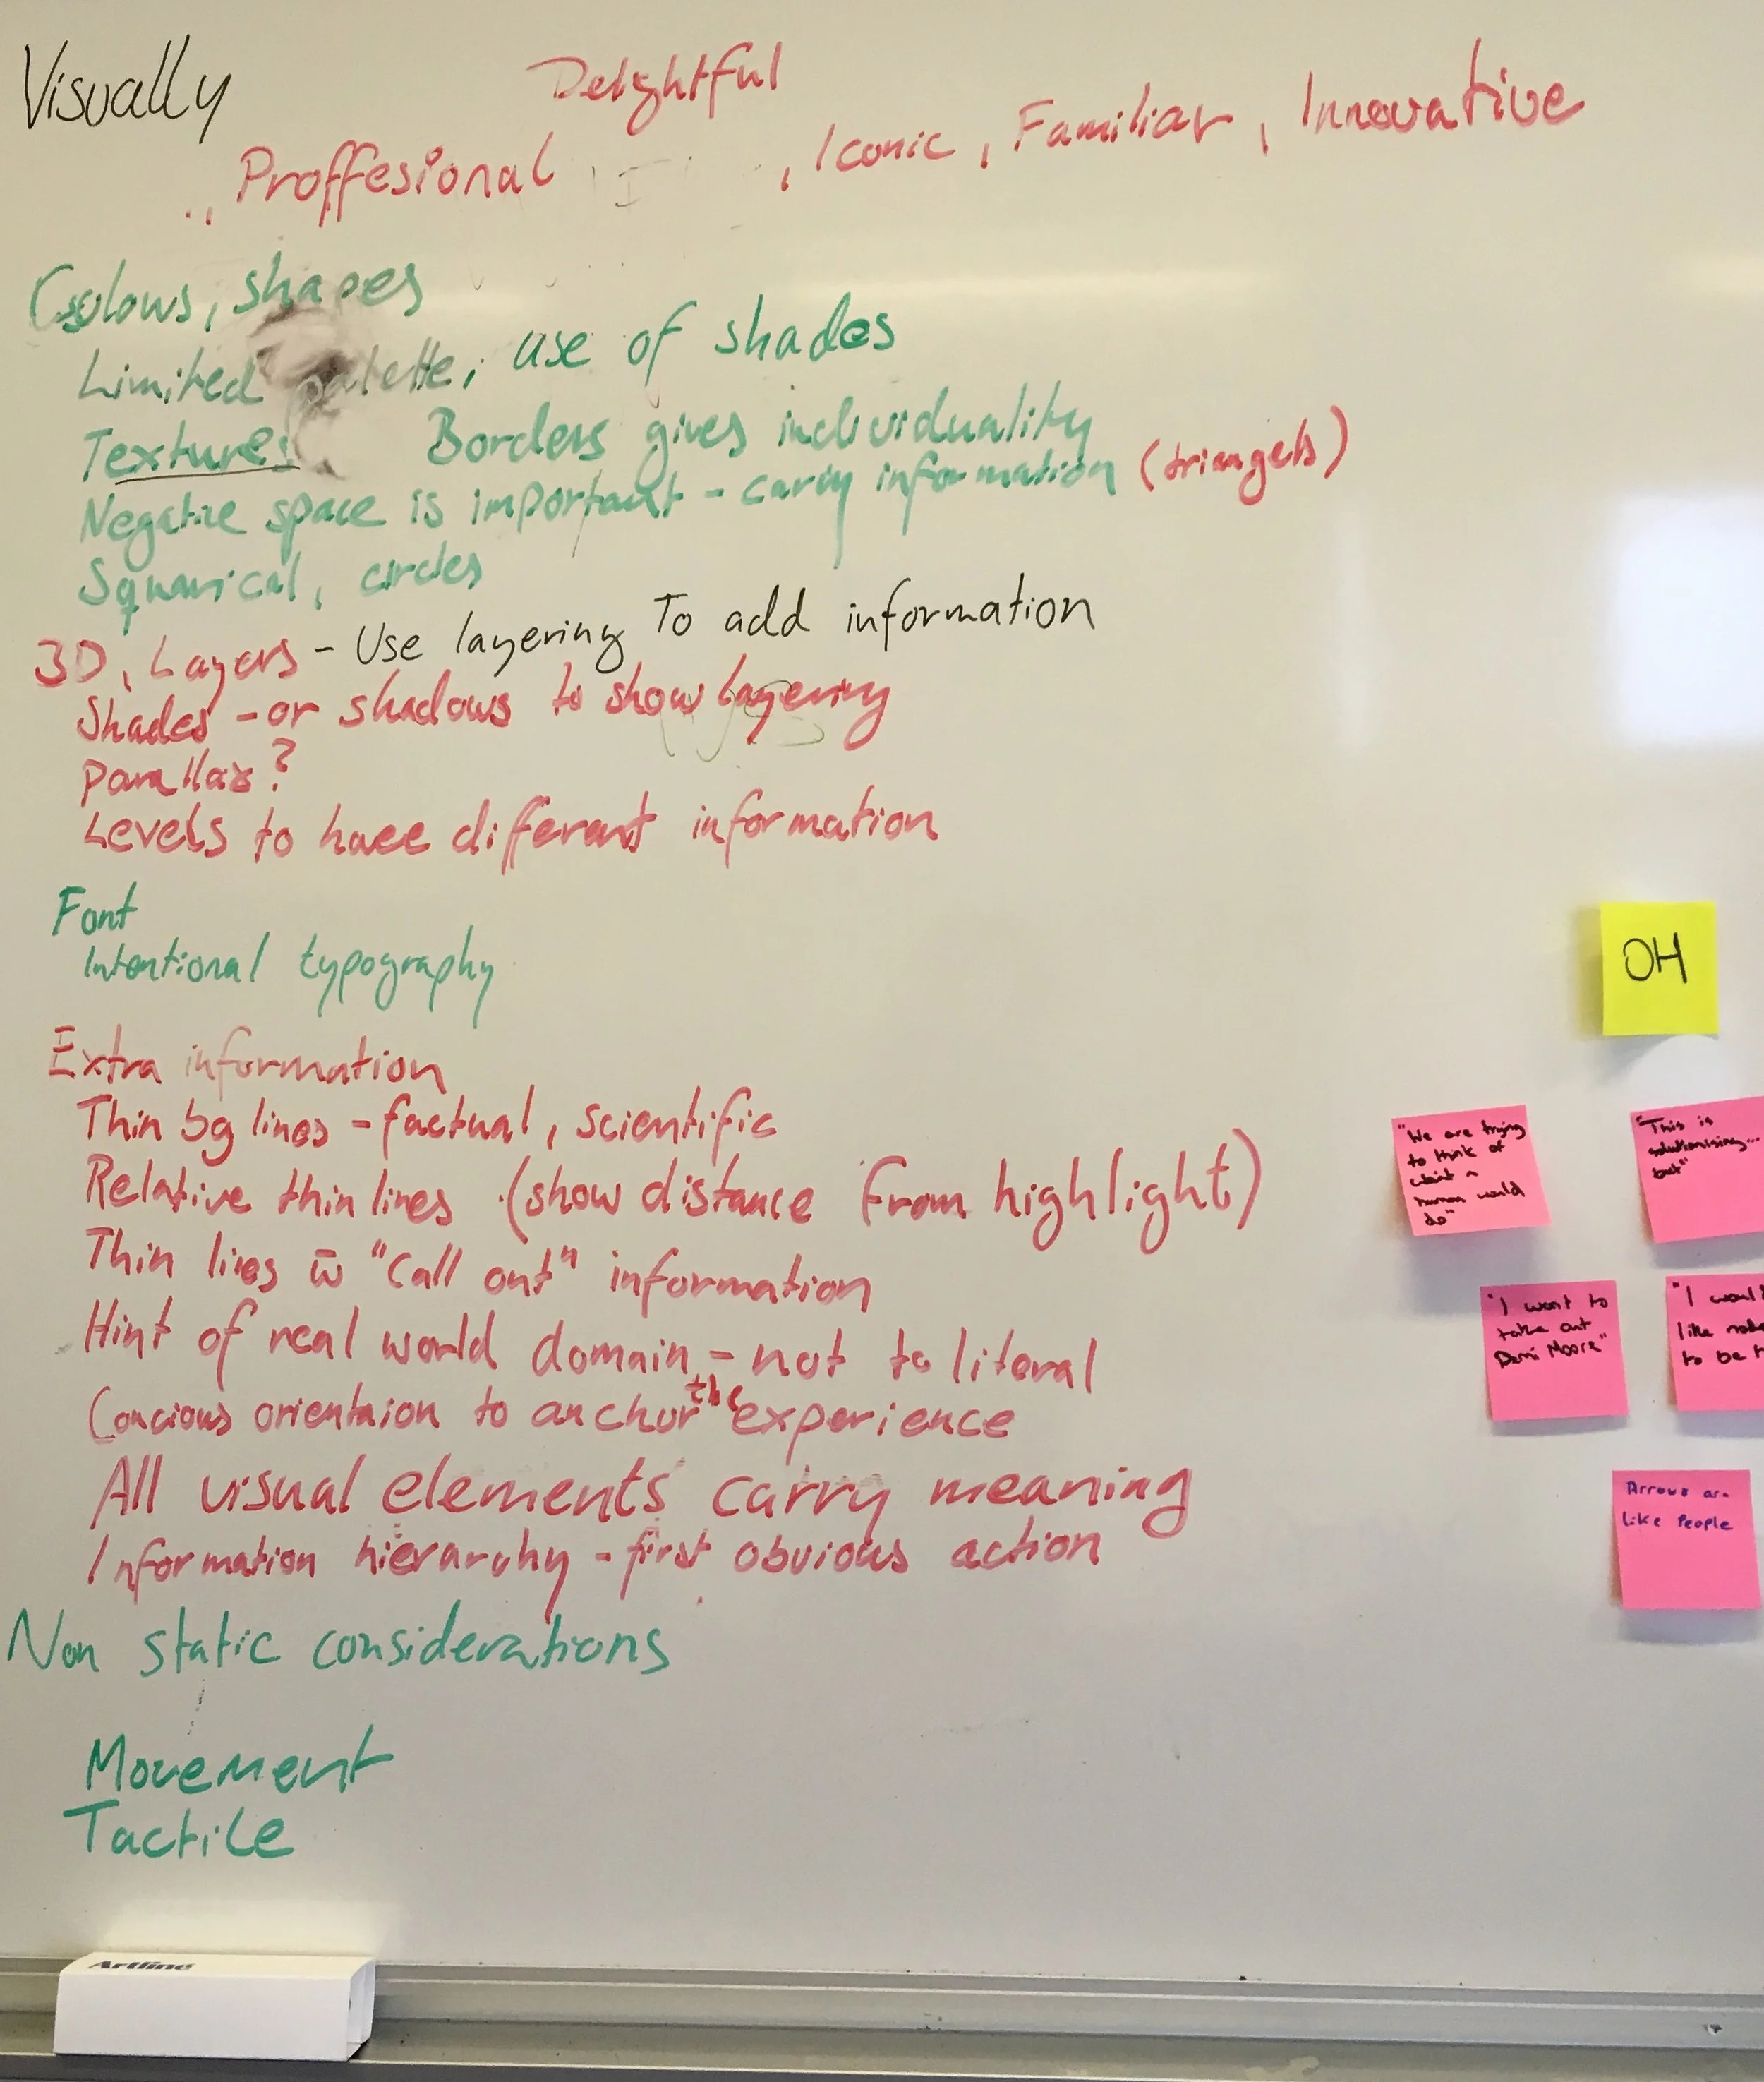 Visually
Delightful
., Proffesional , Iconic , Familiar , Innovative
Colours, shapes
Limited palette, use of shades
Textures Borders gives individuality
Negative space is important - carry information (triangels)
Squarical, circles
3D, Layers - Use layering To add information
Shades - or shadows to show layering
Parallax?
Levels to have different information
Font
Intentional typography
Extra information
Thin bg lines - factual, scientific
Relative thin lines (show distance from highlight)
Thin lines w̄ "Call out" information
Hint of real world domain - not to literal
Concious orientaion to anchor the experience
All visual elements carry meaning
Information hierarchy - first obvious action
Non static considerations
Movement
Tactile
OH
"We are trying
to think of
what a
human would
do"
"This is
solutionising...
but"
"I want to
take out
Demi Moore"
"I would
like
to be
Arrows are
Like People
Artline